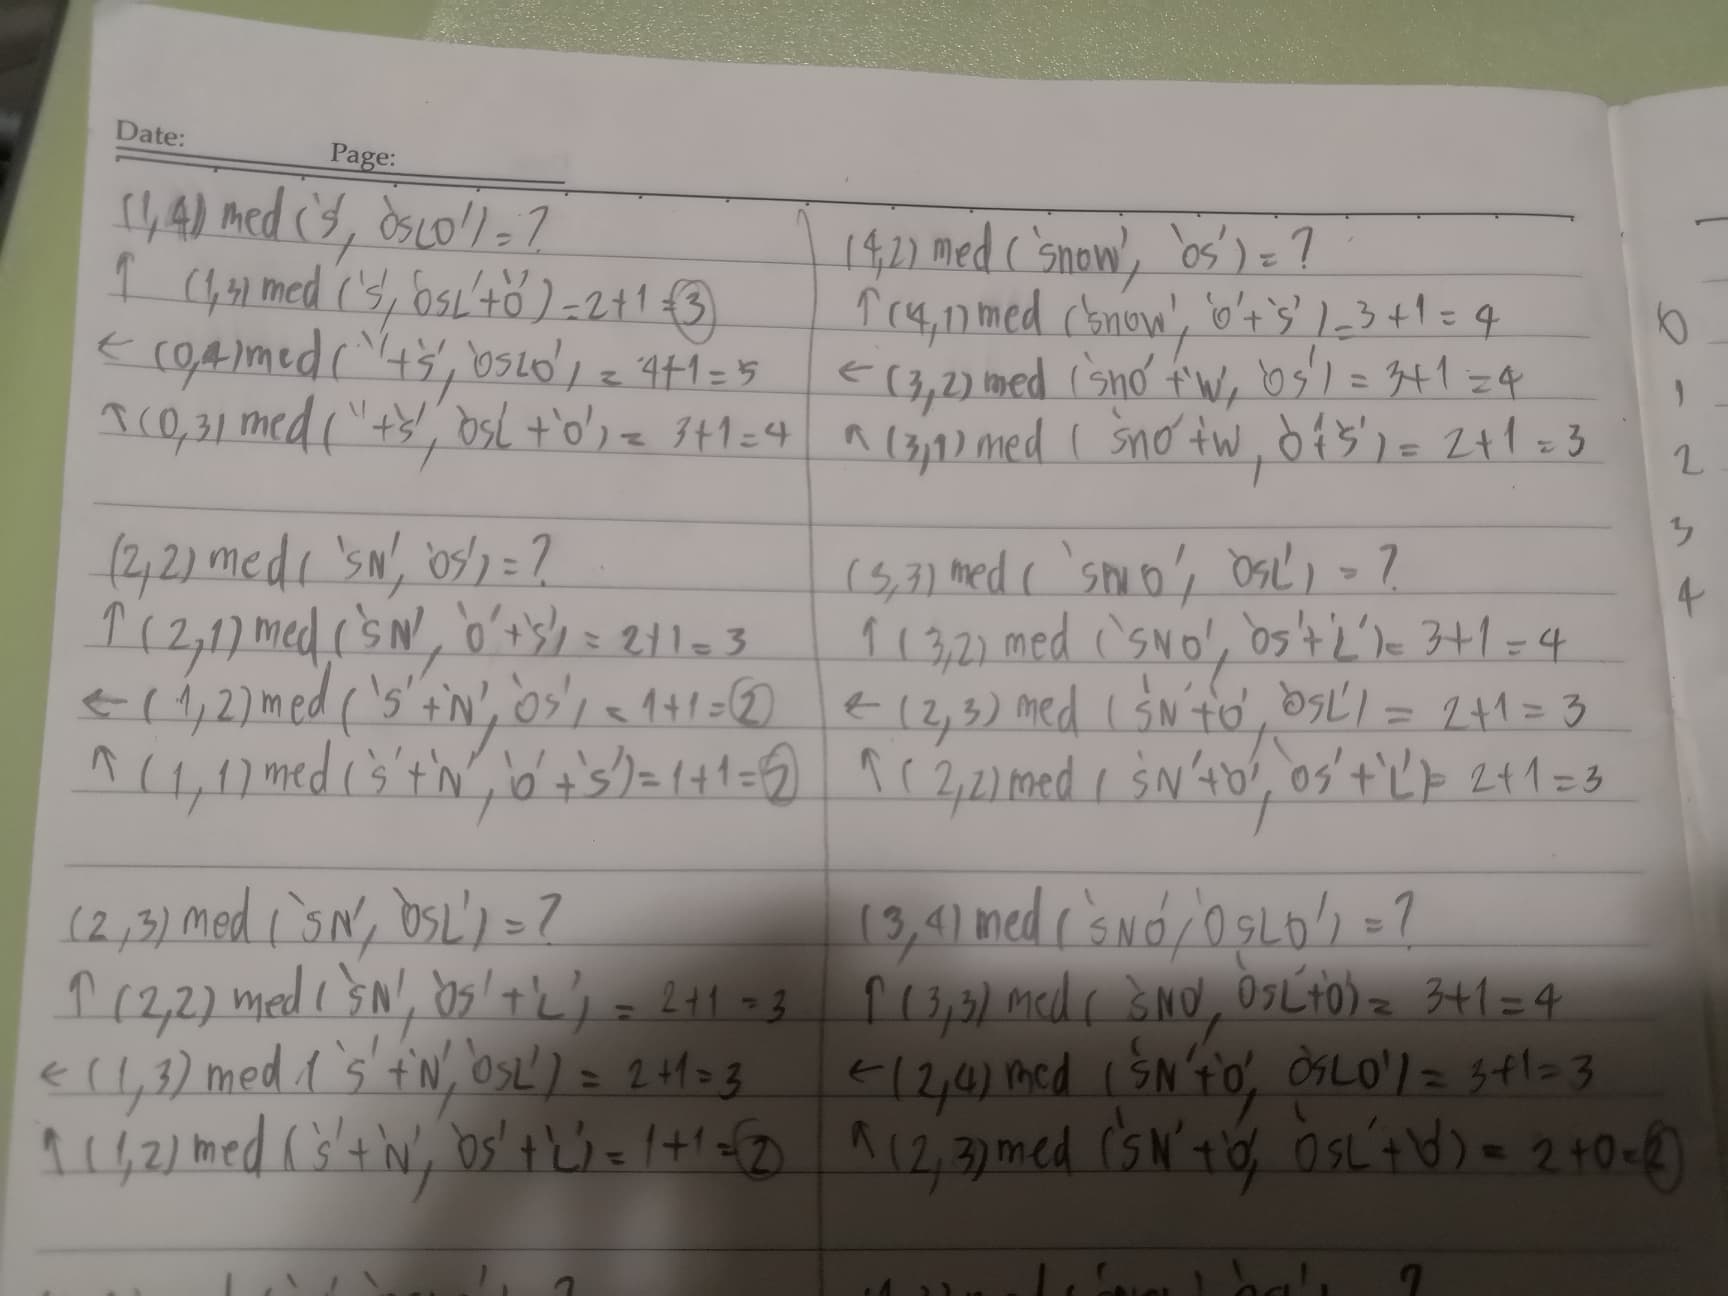 Date:
Page:
(1,4) med ('s', 'OSLO') = ?
↑ (1,3) med ('s', 'OSL'+'O') = 2+1 = 3
← (0,4) med (''+'s', 'OSLO') = 4+1 = 5
↖ (0,3) med (''+'s', 'OSL+'O') = 3+1 = 4
(2,2) med ('SN', 'OS') = ?
↑ (2,1) med ('SN', 'O'+'S') = 2+1 = 3
← (1,2) med ('S'+'N', 'OS') = 1+1 = 2
↖ (1,1) med ('S'+'N', 'O'+'S') = 1+1 = 2
(2,3) med ('SN', 'OSL') = ?
↑ (2,2) med ('SN', 'OS'+'L') = 2+1 = 3
← (1,3) med ('S'+'N', 'OSL') = 2+1 = 3
↖ (1,2) med ('S'+'N', 'OS'+'L') = 1+1 = 2
(4,2) med ('snow', 'OS') = ?
↑ (4,1) med ('snow', 'O'+'S') = 3+1 = 4
← (3,2) med ('sno'+'w', 'OS') = 3+1 = 4
↖ (3,1) med ('sno'+w, 'O'+'S') = 2+1 = 3
(3,3) med ('SNO', 'OSL') = ?
↑ (3,2) med ('SNO', 'OS'+'L') = 3+1 = 4
← (2,3) med ('SN'+'O', 'OSL') = 2+1 = 3
↖ (2,2) med ('SN'+'O', 'OS'+'L') = 2+1 = 3
(3,4) med ('SNO', 'OSLO') = ?
↑ (3,3) med ('SNO', 'OSL'+'O') = 3+1 = 4
← (2,4) med ('SN'+'O', 'OSLO') = 3+1 = 3
↖ (2,3) med ('SN'+'O', 'OSL'+'O') = 2+0 = 2
0
1
2
3
4